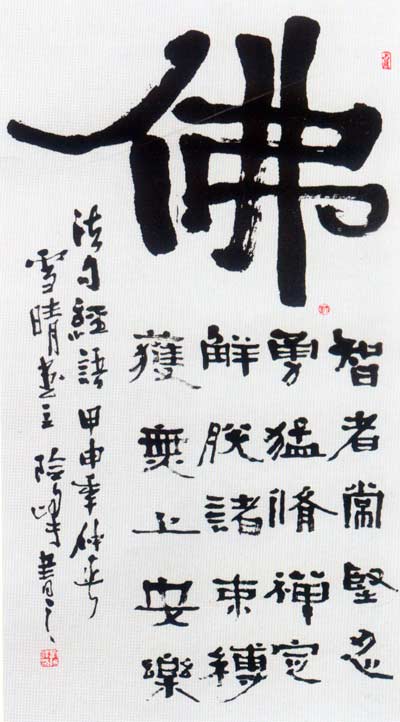 佛
智者常堅忍
勇猛脩禪定
觧脫諸束縛
獲無上安樂
法句經語甲申年仲
雪晴主峰書之